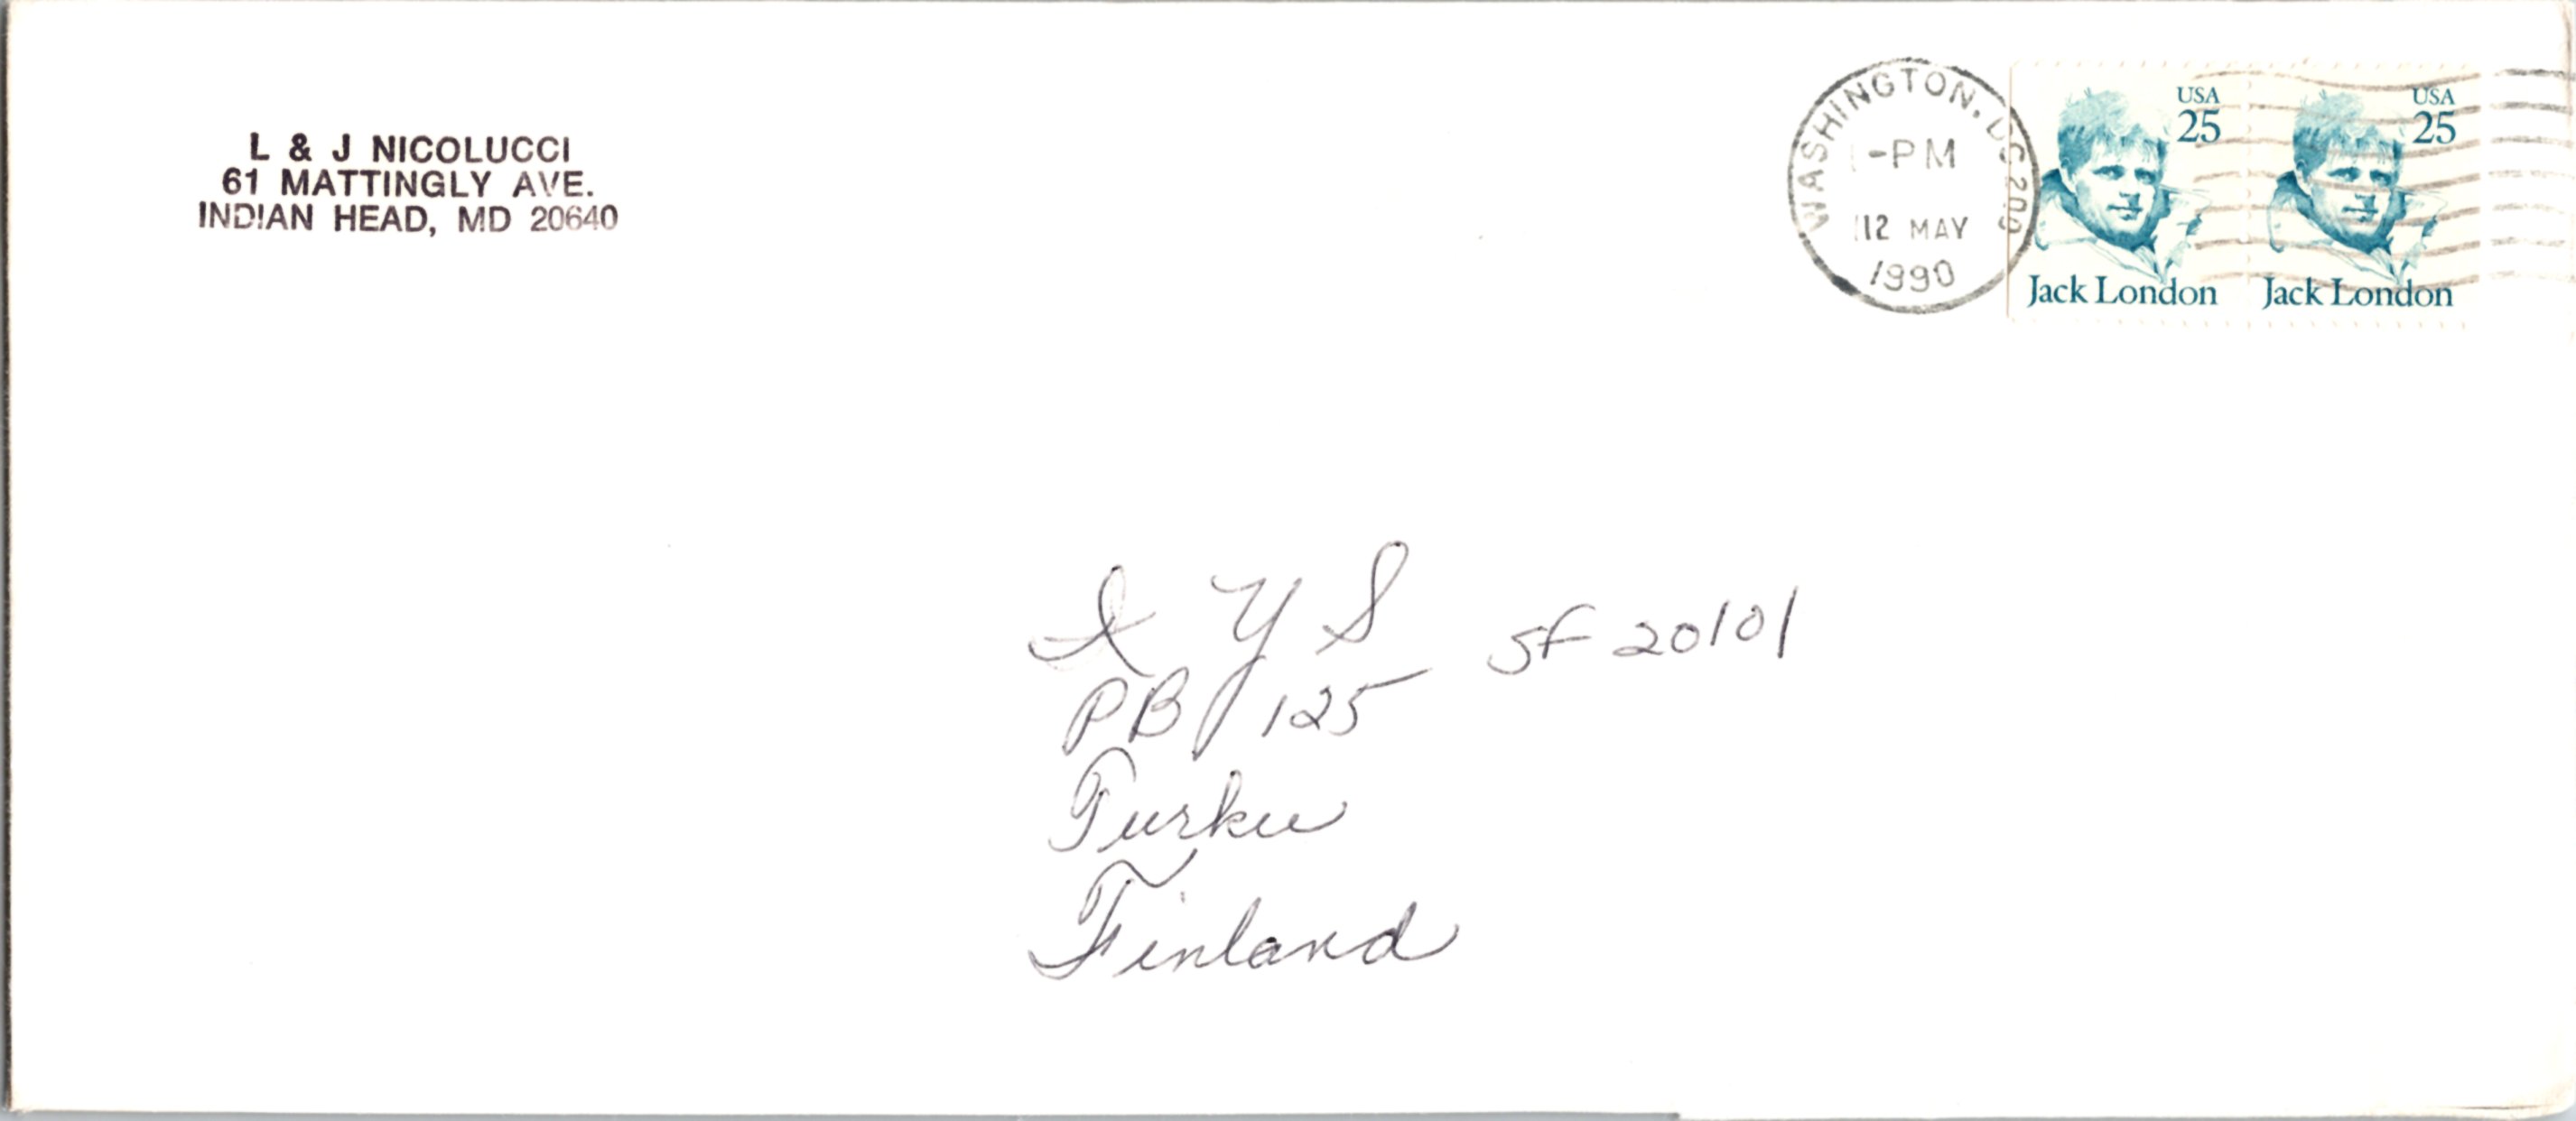 L & J NICOLUCCI
61 MATTINGLY AVE.
INDIAN HEAD, MD 20640
WASHINGTON, DC 200
-PM
12 MAY
1990
USA
25
Jack London
USA
25
Jack London
I Y S SF 20101
PB 125
Turku
Finland